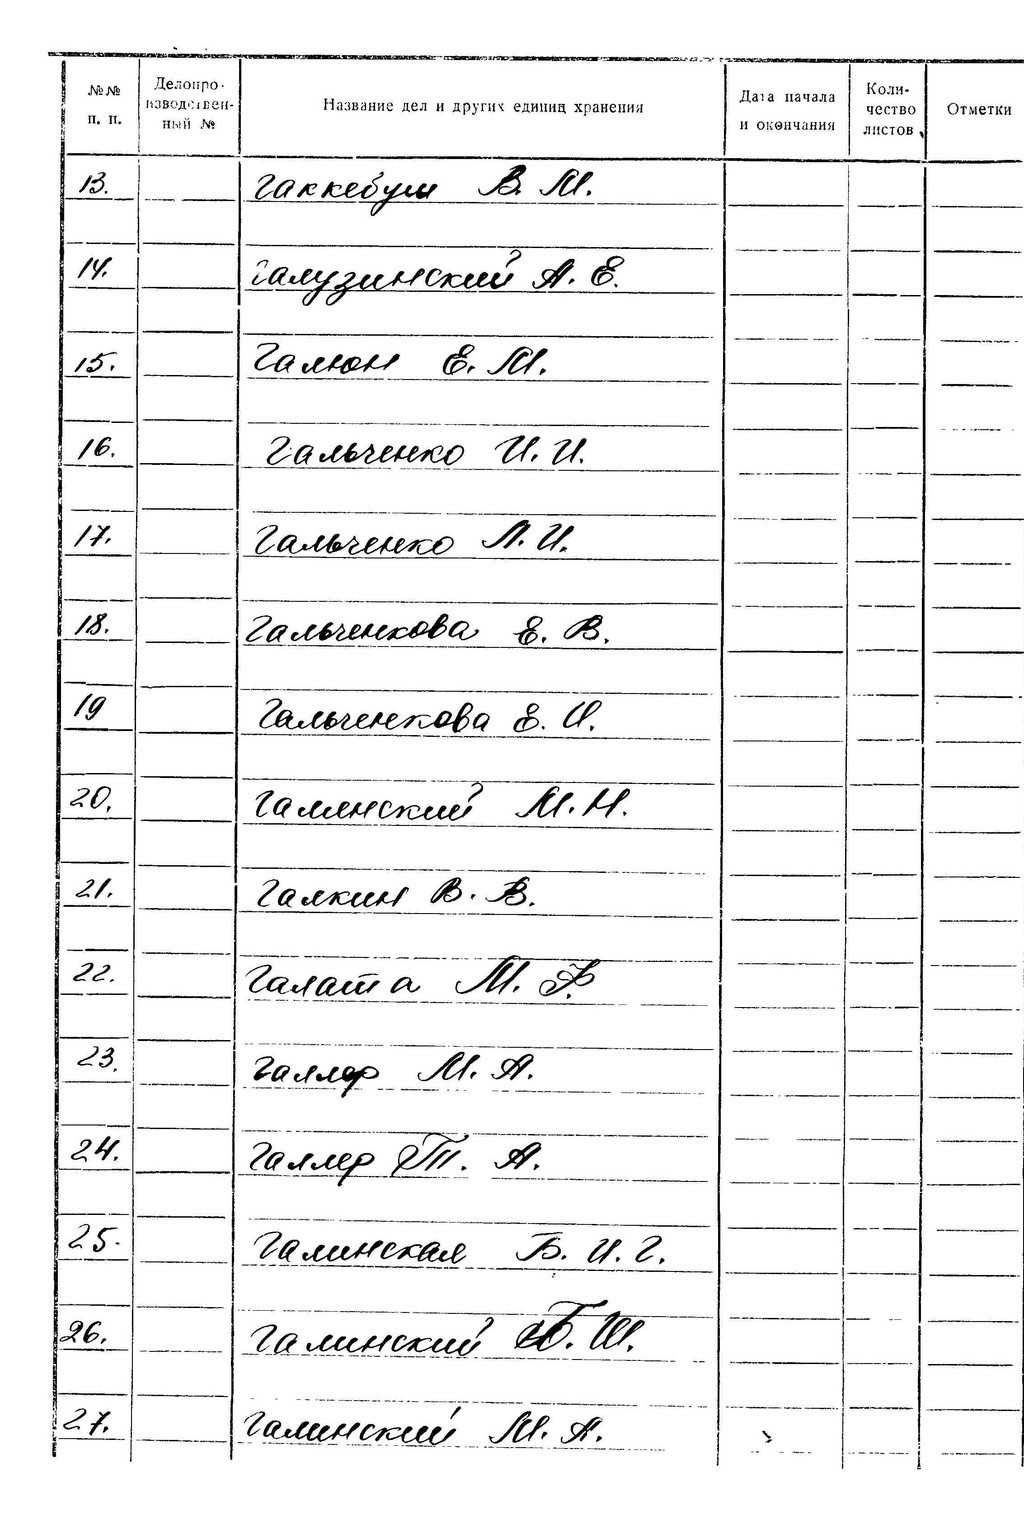 №№ п. п. Делопро- изводствен- ный № Название дел и других единиц хранения Дата начала и окончания Коли- чество листов Отметки
13. Гаккебуш В. М.
14. Галузинский А. Е.
15. Галюн Е. М.
16. Гальченко И. И.
17. Гальченко Л. И.
18. Гальченкова Е. В.
19 Гальченкова Е. И.
20. Галянский М. Н.
21. Галкин В. В.
22. Галата М. Ф.
23. Галлер М. А.
24. Галлер Т. А.
25. Галинская Б. И. Г.
26. Галинский Б. Ш.
27. Галинский М. А.